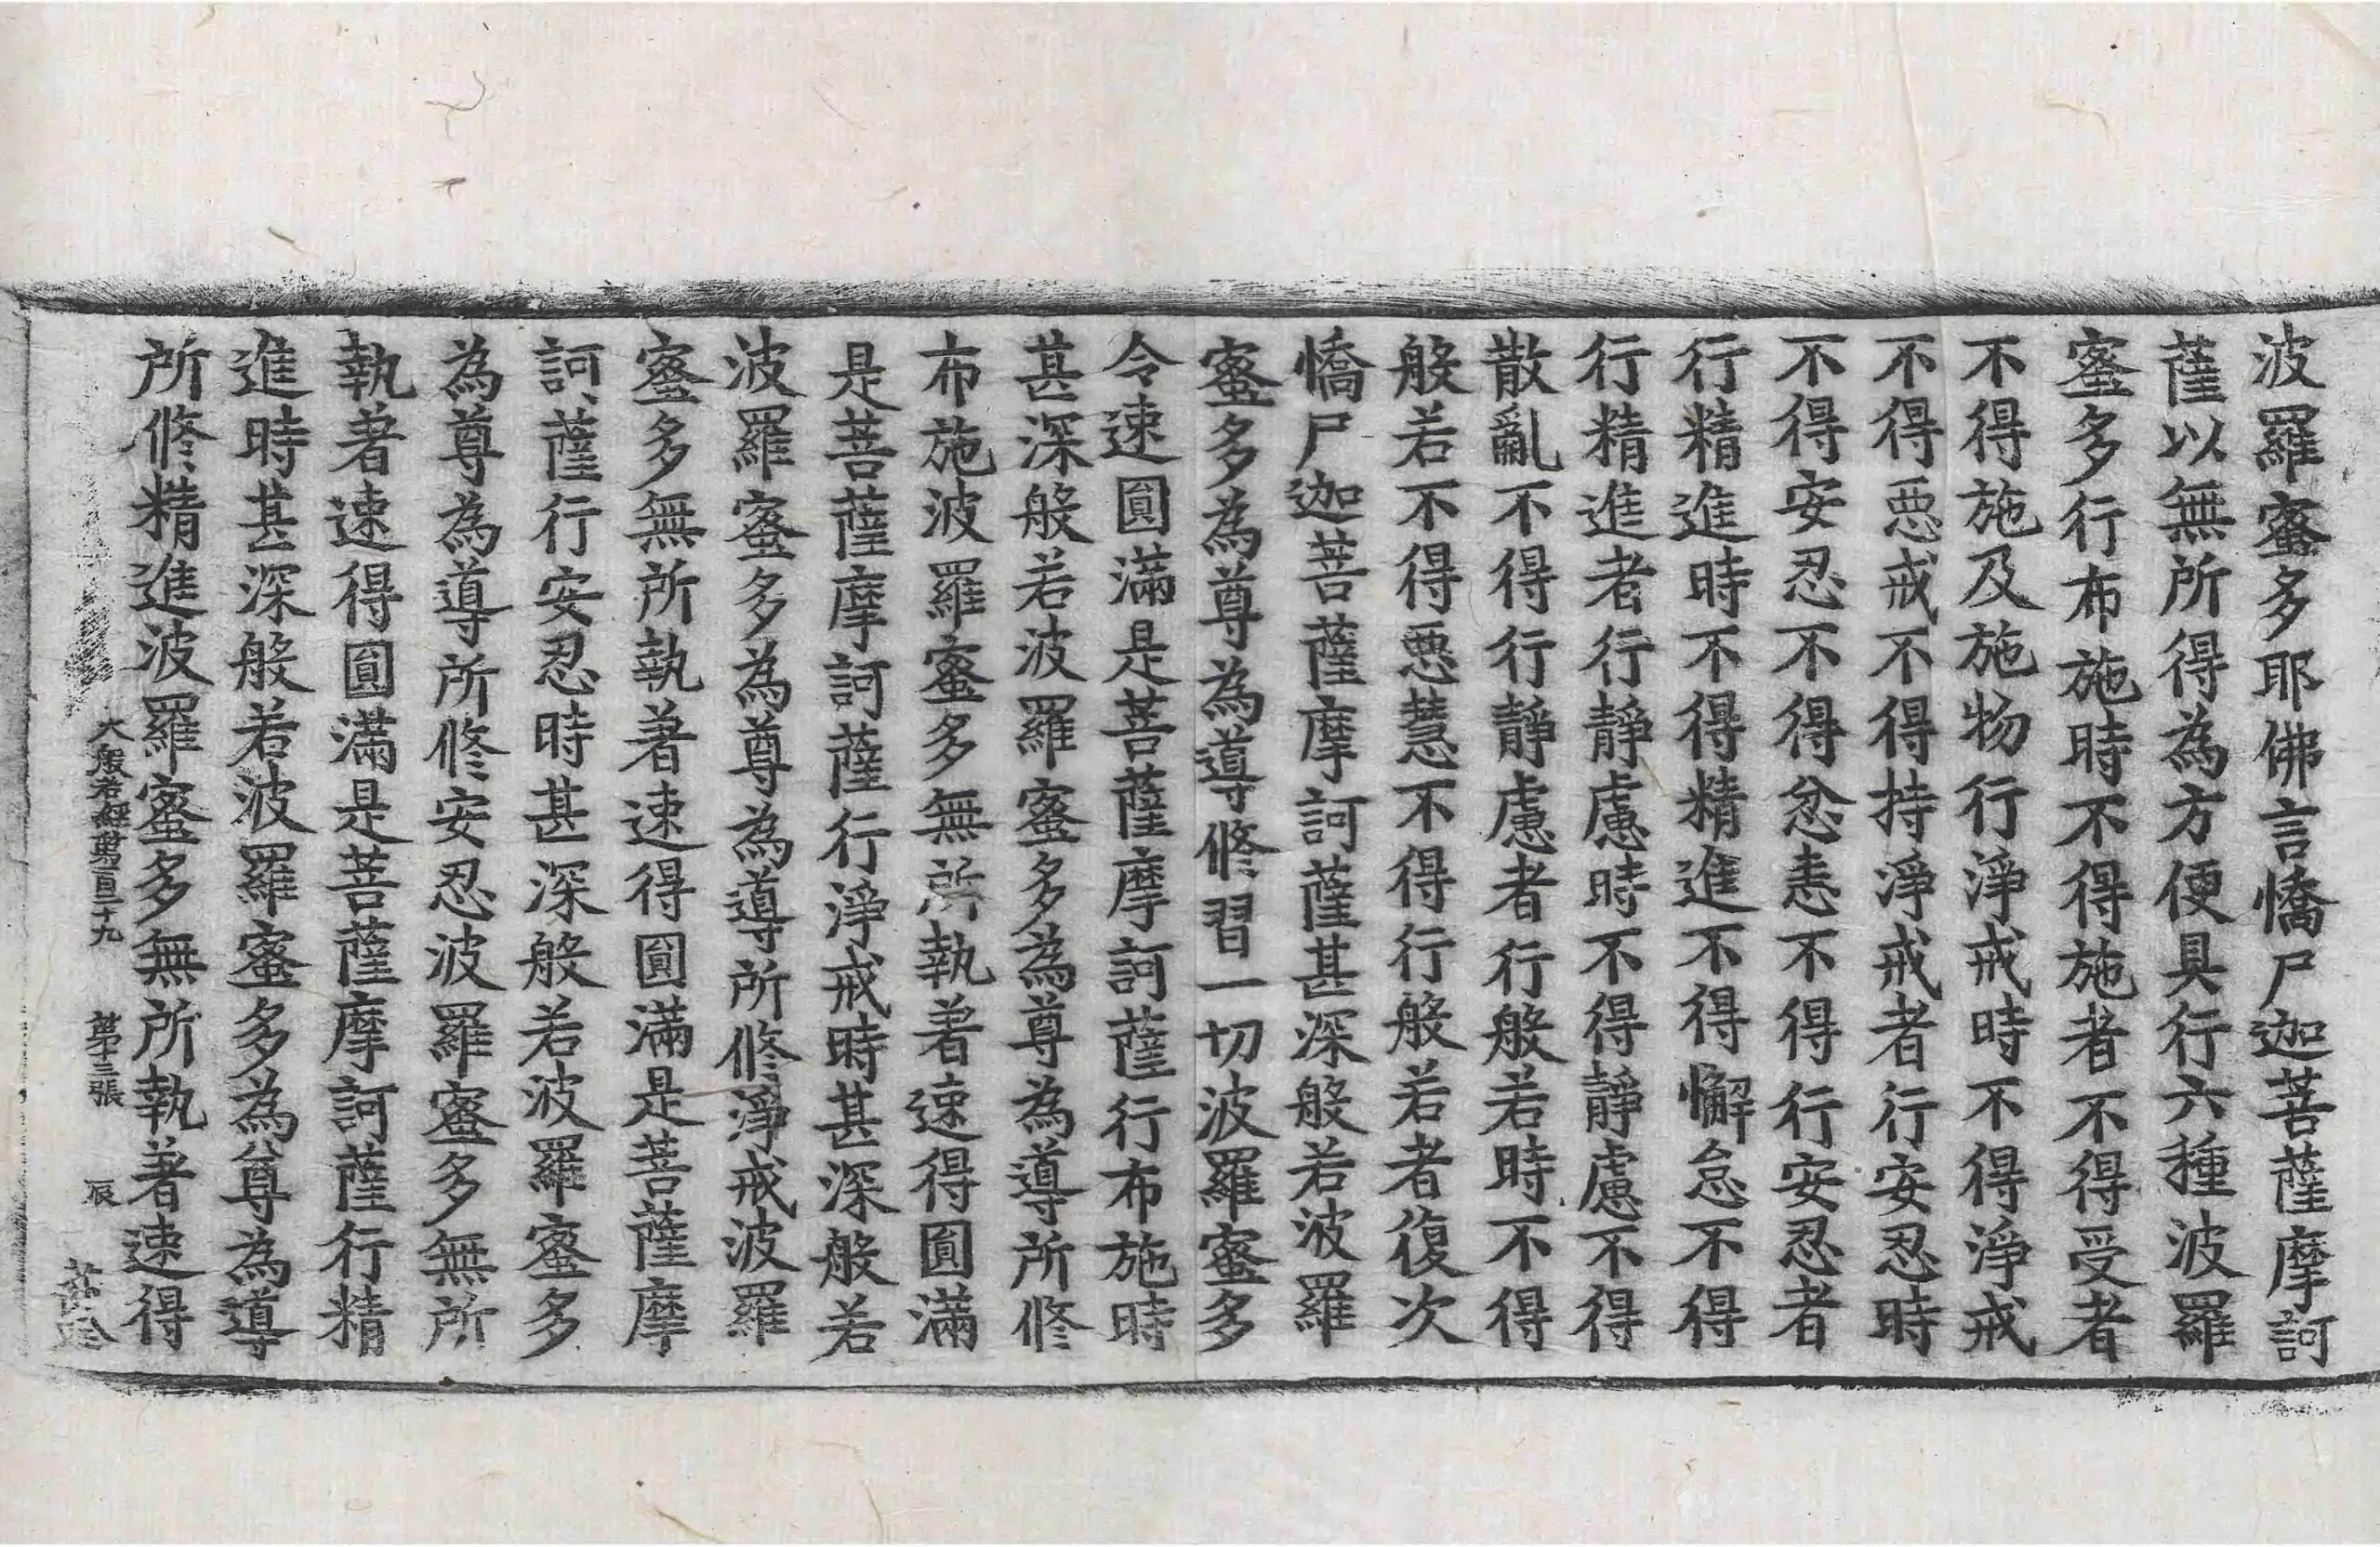 波羅蜜多耶佛言憍尸迦菩薩摩訶
薩以無所得為方便具行六種波羅
蜜多行布施時不得施者不得受者
不得施及施物行淨戒時不得淨戒
不得惡戒不得持淨戒者行安忍時
不得安忍不得忿恚不得行安忍者
行精進時不得精進不得懈怠不得
行精進者行靜慮時不得靜慮不得
散亂不得行靜慮者行般若時不得
般若不得惡慧不得行般若者復次
憍尸迦菩薩摩訶薩甚深般若波羅
蜜多為尊為導修習一切波羅蜜多
令速圓滿是菩薩摩訶薩行布施時
甚深般若波羅蜜多為尊為導所修
布施波羅蜜多無所執著速得圓滿
是菩薩摩訶薩行淨戒時甚深般若
波羅蜜多為尊為導所修淨戒波羅
蜜多無所執著速得圓滿是菩薩摩
訶薩行安忍時甚深般若波羅蜜多
為尊為導所修安忍波羅蜜多無所
執著速得圓滿是菩薩摩訶薩行精
進時甚深般若波羅蜜多為尊為導
所修精進波羅蜜多無所執著速得
大般若經第一百二十九 第十三張 辰